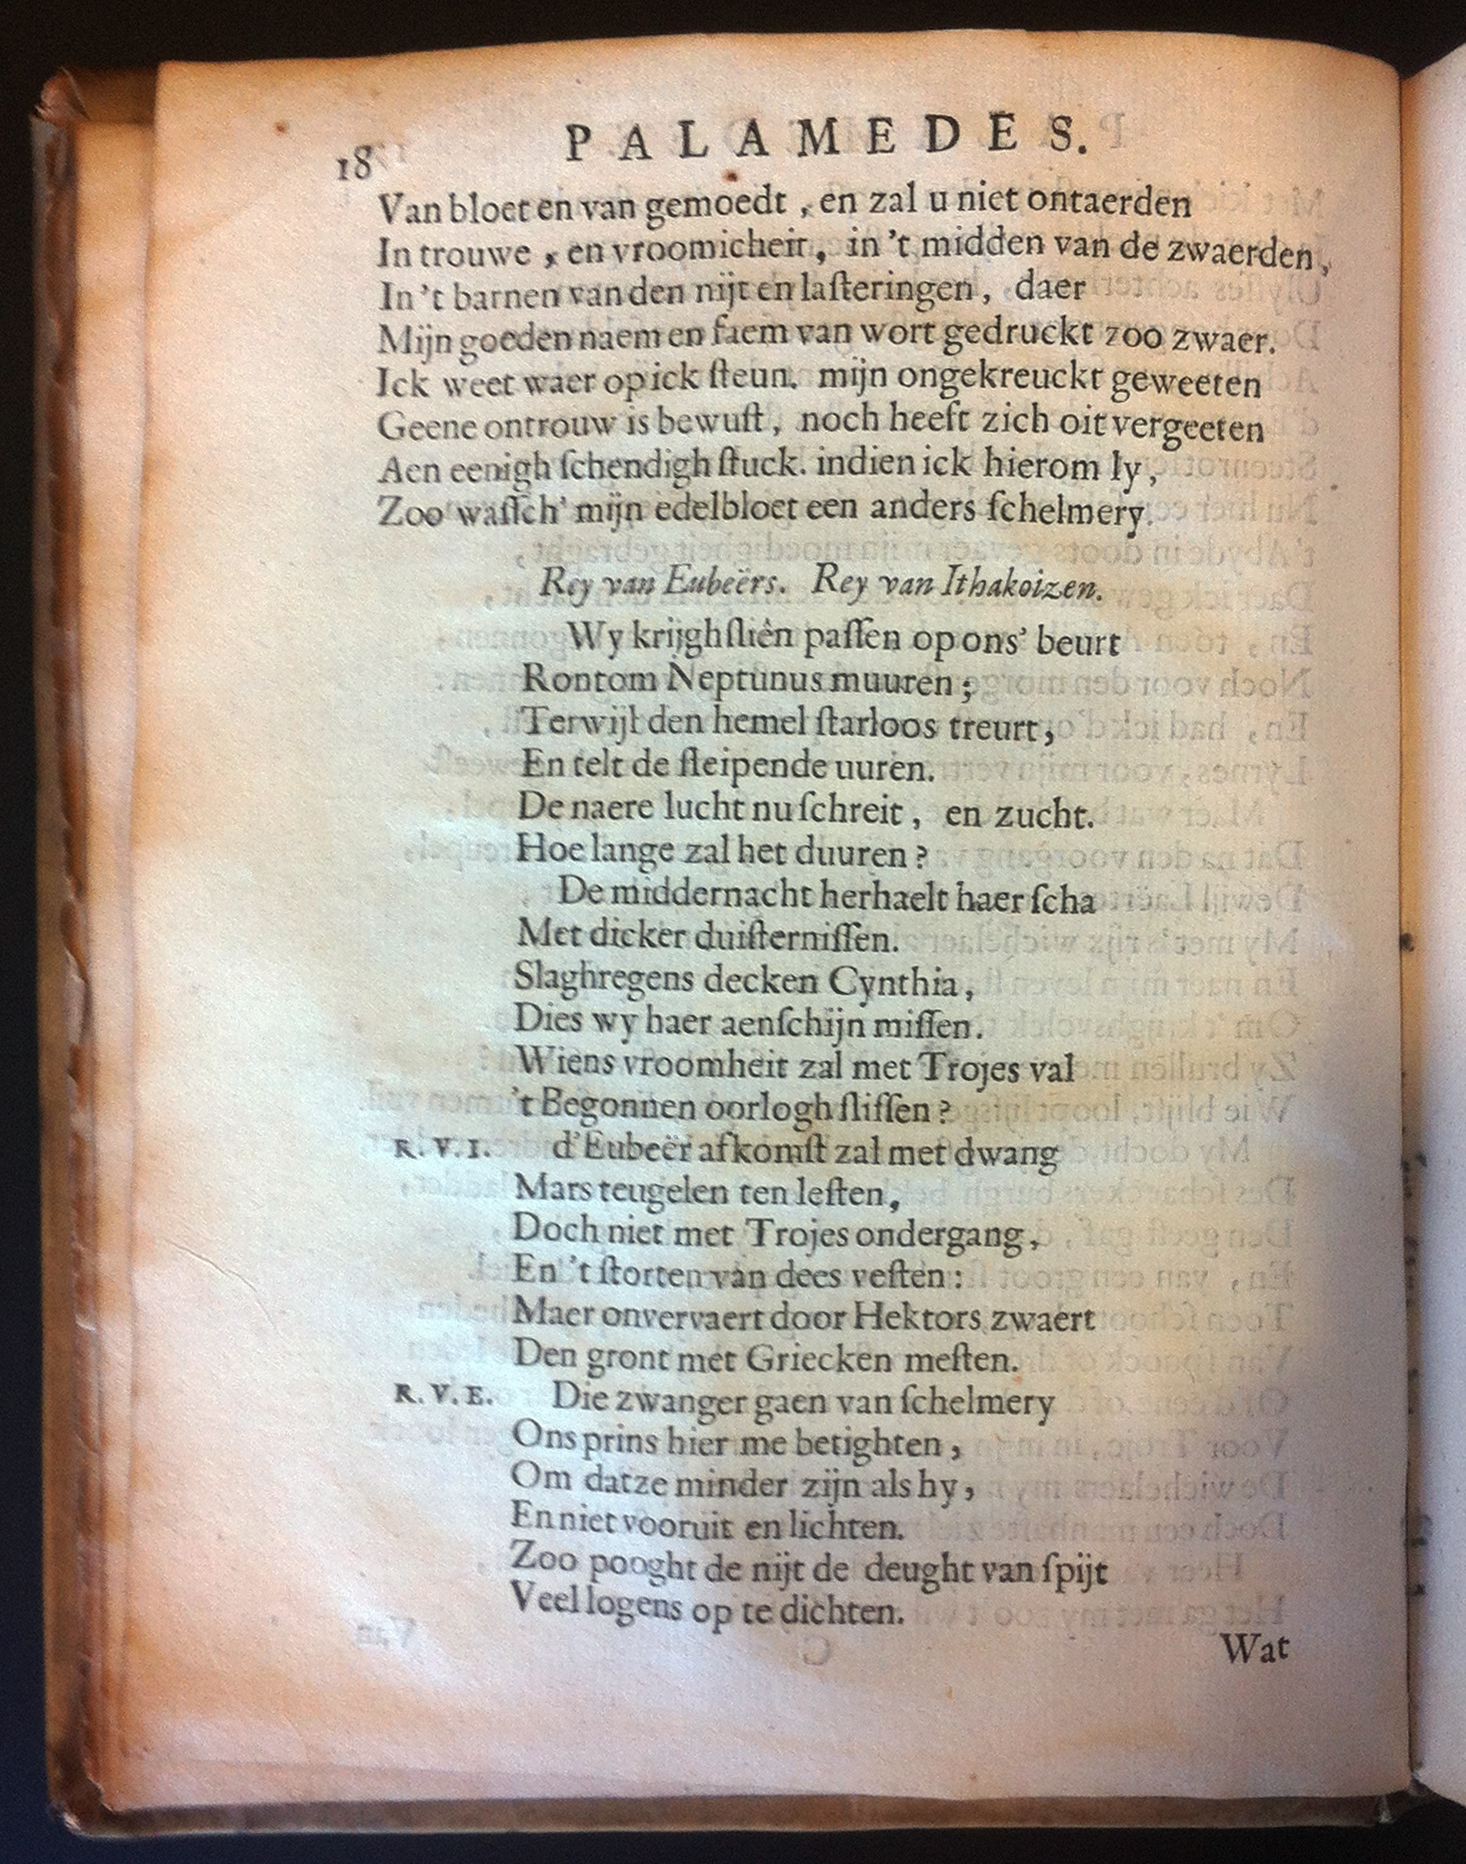 18 PALAMEDES.
Van bloet en van gemoedt, en zal u niet ontaerden
In trouwe, en vroomicheit, in 't midden van de zwaerden,
In 't barnen van den nijt en laſteringen, daer
Mijn goeden naem en faem van wort gedruckt zoo zwaer.
Ick weet waer op ick ſteun. mijn ongekreuckt geweeten
Geene ontrouw is bewuſt, noch heeft zich oit vergeeten
Aen eenigh ſchendigh ſtuck. indien ick hierom ly,
Zoo waſſch' mijn edelbloet een anders ſchelmery.
Rey van Eubeërs. Rey van Ithakoizen.
Wy krijghſliên paſſen op ons' beurt
Rontom Neptunus muuren;
Terwijl den hemel ſtarloos treurt,
En telt de ſleipende uuren.
De naere lucht nu ſchreit, en zucht.
Hoe lange zal het duuren?
De middernacht herhaelt haer ſcha
Met dicker duiſterniſſen.
Slaghregens decken Cynthia,
Dies wy haer aenſchijn miſſen.
Wiens vroomheit zal met Trojes val
't Begonnen oorlogh ſliſſen?
R. V. I. d'Eubeër afkomſt zal met dwang
Mars teugelen ten leſten,
Doch niet met Trojes ondergang,
En 't ſtorten van dees veſten:
Maer onvervaert door Hektors zwaert
Den gront met Griecken meſten.
R. V. E. Die zwanger gaen van ſchelmery
Ons prins hier me betighten,
Om datze minder zijn als hy,
En niet vooruit en lichten.
Zoo pooght de nijt de deught van ſpijt
Veel logens op te dichten.
Wat